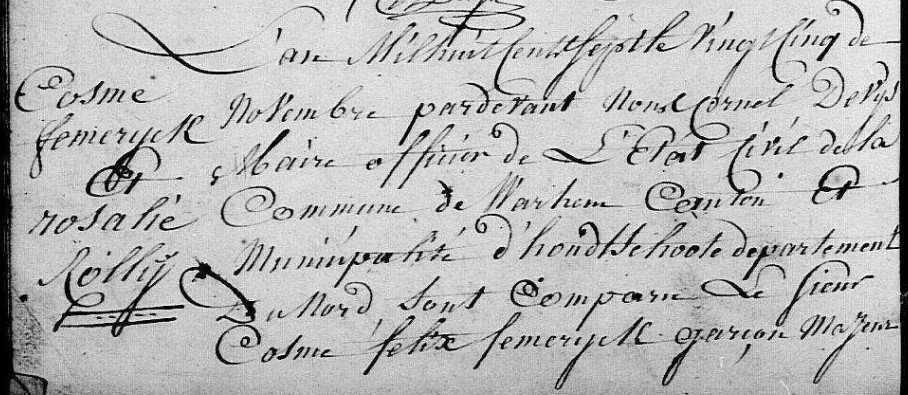 L'an Mil huit Cent Sept le Vingt Cinq de
Cosme
femeryck
Et
rosalie
Rölly
Novembre pardevant Nous Cornel Devys
Maire officier de L'Etat Civil de la
Commune de Warhem Canton Et
Municipalité d'hondtschoote departement
Du Nord, sont Comparu Le sieur
Cosme felix femeryck garçon Majeur